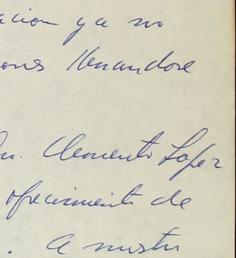 acion ya no
ones llenandose
Dn. Clemente Lopez
ofrecimiento de
. A nuestro